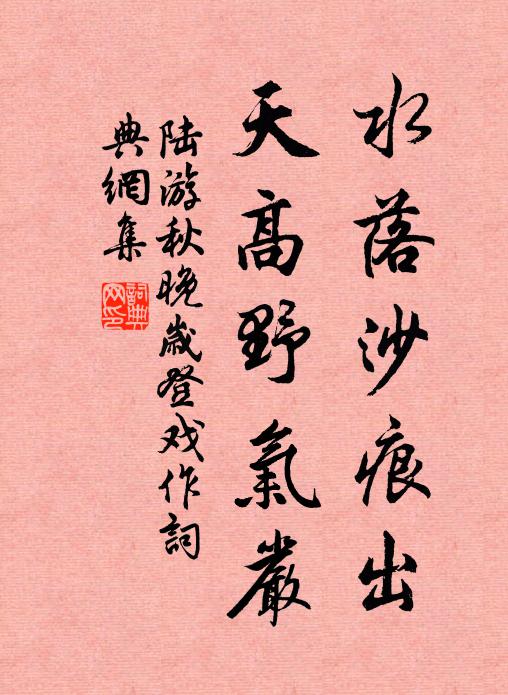 水落沙痕出
天高野氣嚴
陸游秋晚歲登戏作詞
典網集
詞典網印